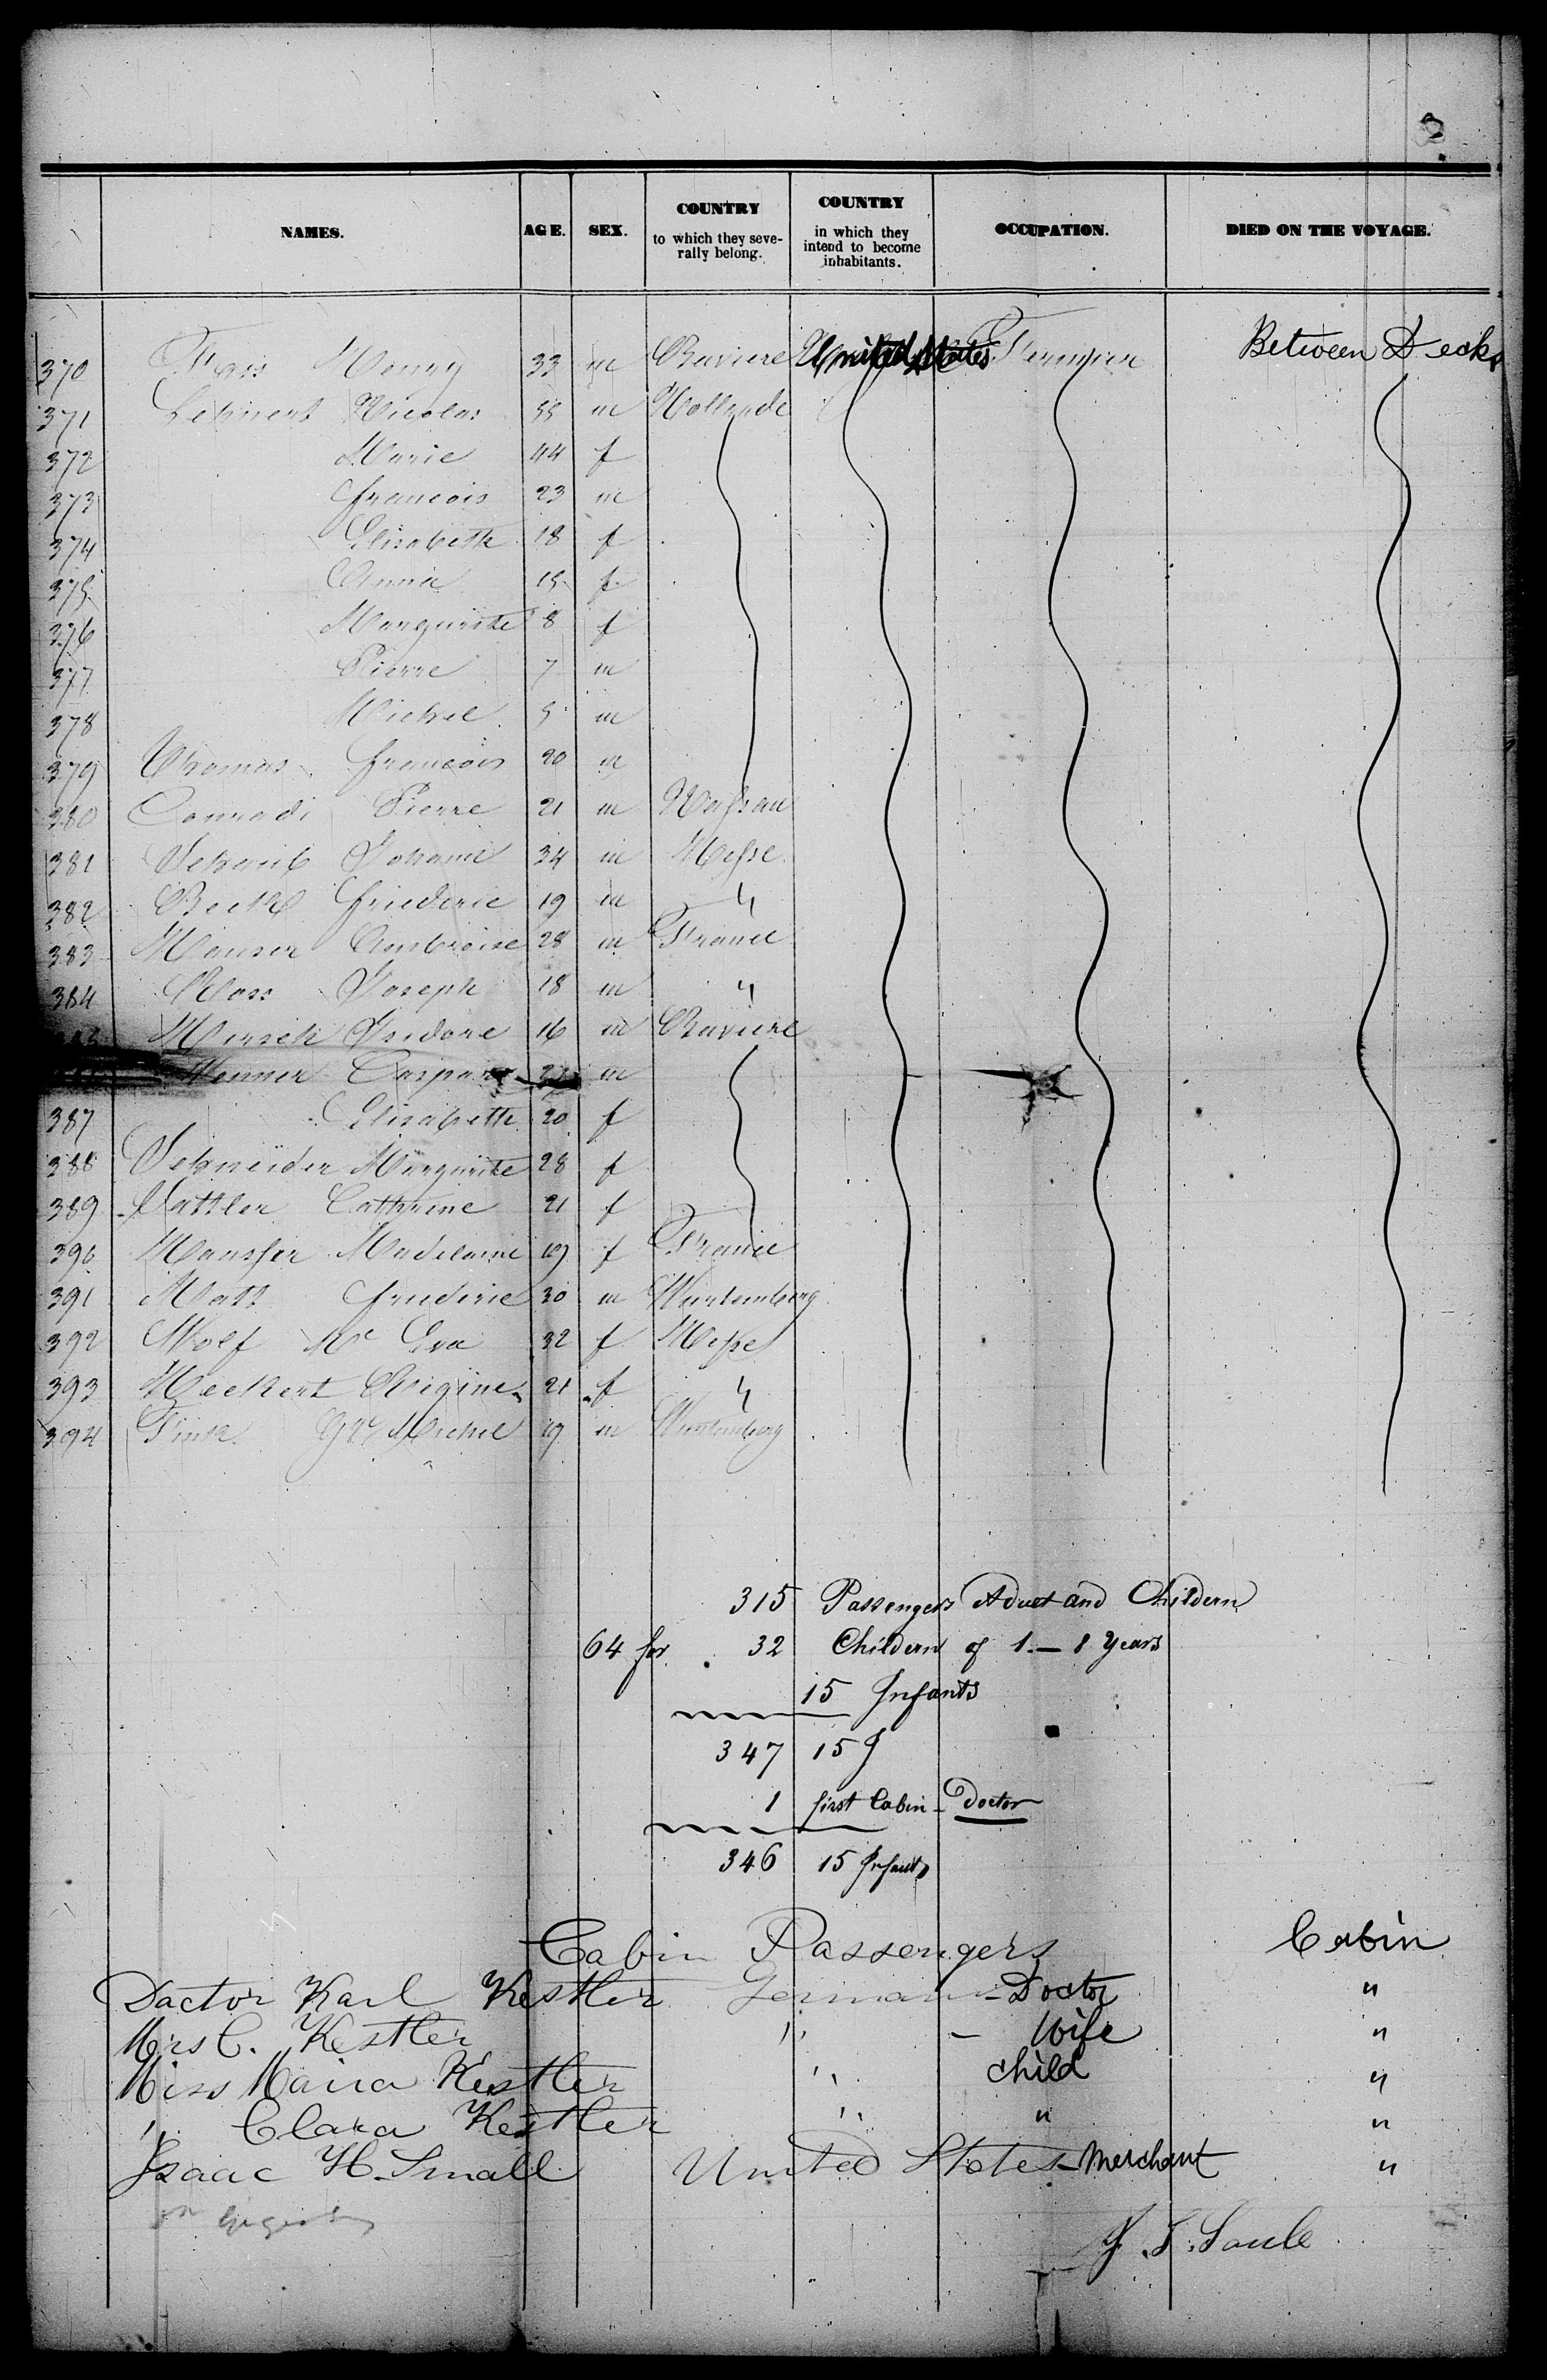 3
NAMES. AGE. SEX. COUNTRY to which they seve-rally belong. COUNTRY in which they intend to become inhabitants. OCCUPATION. DIED ON THE VOYAGE.
370 Henry 33 m Baviere United States Between Decks
371 Lehnert Nicolas 55 m Hollande
372 Marie 44 f
373 francois 23 m
374 Elisabeth 18 f
375 Anna 15 f
376 Marguerite 8 f
377 Pierre 7 m
378 Michel 5 m
379 Thomas francois 20 m
380 Conradi Pierre 21 m Nassau
381 Schaub Johann 34 m Hesse
382 friederic 19 m "
383 Ambroise 28 m France
384 Joseph 18 m "
Hirsch Isidore 16 m Baviere
Caspar 27 m
387 Elisabeth 20 f
388 Schneider Marguerite 28 f
389 Sattler Cathrine 21 f
390 Madelaine 19 f France
391 friederic 30 m Wurtemberg
392 Wolf Eva 32 f Hesse
393 Heckert Regine 21 f "
394 Fink Michel 19 m Wurtemberg
315 Passengers Adult and Childern
64 for 32 Childern of 1 - 8 Years
15 Infants
347 15 J
1 first Cabin - Doctor
346 15 Infants
Cabin Passengers Cabin
Doctor Karl Kestler German - Doctor "
Mrs C. Kestler " - Wife "
Miss Maria Kestler " child "
" Clara Kestler " " "
Isaac H. Small United States - Merchant "
J. S. Soule